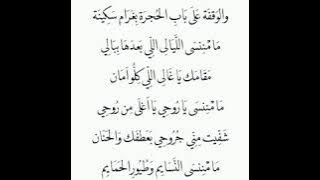 والوَقفَة عَلَى بَابِ الحُجرَة بِغَرَام سَكِينَة
مَا مْنِنسَى اللَّيَالِى اللِّي بَعدَهَا بِبَالِي
مَقَامَك يَا غَالِى اللِّي كِلُّو أمَان
مَا مْنِنسَى يَا رُوحِي يَا أغلَى مِن رُوحِي
شَفِيت مِنِّي جُرُوحِي بَعَطفَك وَالحَنَان
مَا مْنِنسَى النَّسَايِم وَطُيُورِ الحَمَايِم